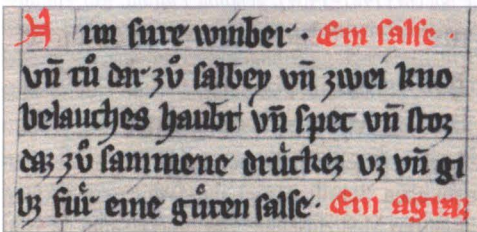 Nim sure winber · Ein salse ·
vn̄ tuͦ dar zuͦ salbey vn̄ zwei kno
belauches haubt vn̄ spec vn̄ stoz
daz zuͦ sammene druͤckez vz vn̄ gi
bz fuͤr eine guͤten salse · Ein agraz